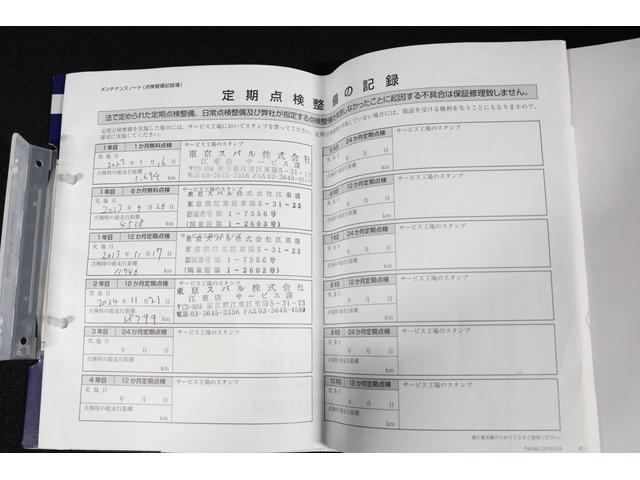 メンテナンスノート(点検整備記録簿)
定期点検整備の記録
法で定められた定期点検整備、日常点検整備及び弊社が指定する点検整備を実施しなかったことに起因する不具合は保証修理致しません。
定期点検整備を実施した場合には、サービス工場においてスタンプを貰ってください。
確実に実施してください。
1年目 1か月無料点検
サービス工場のスタンプ
実施日
2023年1月16日
点検時の総走行距離
1,694 km
東京スバル株式会社
江東店 サービス課
〒135-0016 東京都江東区東陽5-31-23
電話03-3645-3356 FAX03-3645-4589
1年目 6か月無料点検
サービス工場のスタンプ
実施日
2023年6月26日
点検時の総走行距離
4508 km
東京スバル株式会社江東店
東京都江東区東陽5-31-23
認証番号 第1-7556号
(関東指第1-2603号)
1年目 12か月定期点検
サービス工場のスタンプ
実施日
2023年11月17日
点検時の総走行距離
km
東京スバル株式会社江東店
東京都江東区東陽5-31-23
認証番号 第1-7556号
(関東指第1-2603号)
2年目 12か月定期点検
サービス工場のスタンプ
実施日
2024年11月21日
点検時の総走行距離
18799 km
東京スバル株式会社
江東店 サービス課
〒135-0016 東京都江東区東陽5-31-23
電話03-3645-3356 FAX03-3645-4589
3年目 24か月定期点検
サービス工場のスタンプ
実施日
年 月 日
点検時の総走行距離
km
4年目 12か月定期点検
サービス工場のスタンプ
実施日
年 月 日
点検時の総走行距離
km
サービス工場のスタンプ
年 月 日
km
サービス工場のスタンプ
年 月 日
km
7年目
サービス工場のスタンプ
年 月 日
km
8年目 12か月定期点検
サービス工場のスタンプ
実施日
年 月 日
km
9年目 24か月定期点検
サービス工場のスタンプ
実施日
年 月 日
点検時の総走行距離
km
10年目 12か月定期点検
サービス工場のスタンプ
実施日
年 月 日
点検時の総走行距離
km